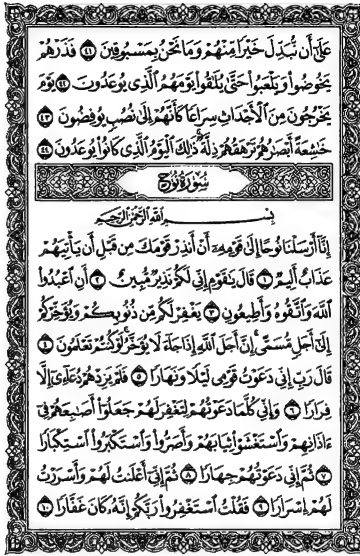 عَلَىٰٓ أَن نُّبَدِّلَ خَيْرًا مِّنْهُمْ وَمَا نَحْنُ بِمَسْبُوقِينَ ٤١ فَذَرْهُمْ
يَخُوضُوا۟ وَيَلْعَبُوا۟ حَتَّىٰ يُلَٰقُوا۟ يَوْمَهُمُ ٱلَّذِى يُوعَدُونَ ٤٢ يَوْمَ
يَخْرُجُونَ مِنَ ٱلْأَجْدَاثِ سِرَاعًا كَأَنَّهُمْ إِلَىٰ نُصُبٍ يُوفِضُونَ ٤٣
خَٰشِعَةً أَبْصَٰرُهُمْ تَرْهَقُهُمْ ذِلَّةٌ ۚ ذَٰلِكَ ٱلْيَوْمُ ٱلَّذِى كَانُوا۟ يُوعَدُونَ ٤٤
سُورَةُ نُوحٍ
بِسْمِ ٱللَّهِ ٱلرَّحْمَٰنِ ٱلرَّحِيمِ
إِنَّآ أَرْسَلْنَا نُوحًا إِلَىٰ قَوْمِهِۦٓ أَنْ أَنذِرْ قَوْمَكَ مِن قَبْلِ أَن يَأْتِيَهُمْ
عَذَابٌ أَلِيمٌ ١ قَالَ يَٰقَوْمِ إِنِّى لَكُمْ نَذِيرٌ مُّبِينٌ ٢ أَنِ ٱعْبُدُوا۟
ٱللَّهَ وَٱتَّقُوهُ وَأَطِيعُونِ ٣ يَغْفِرْ لَكُم مِّن ذُنُوبِكُمْ وَيُؤَخِّرْكُمْ
إِلَىٰٓ أَجَلٍ مُّسَمًّى ۚ إِنَّ أَجَلَ ٱللَّهِ إِذَا جَآءَ لَا يُؤَخَّرُ ۖ لَوْ كُنتُمْ تَعْلَمُونَ ٤
قَالَ رَبِّ إِنِّى دَعَوْتُ قَوْمِى لَيْلًا وَنَهَارًا ٥ فَلَمْ يَزِدْهُمْ دُعَآءِىٓ إِلَّا
فِرَارًا ٦ وَإِنِّى كُلَّمَا دَعَوْتُهُمْ لِتَغْفِرَ لَهُمْ جَعَلُوٓا۟ أَصَٰبِعَهُمْ فِىٓ
ءَاذَانِهِمْ وَٱسْتَغْشَوْا۟ ثِيَابَهُمْ وَأَصَرُّوا۟ وَٱسْتَكْبَرُوا۟ ٱسْتِكْبَارًا
٧ ثُمَّ إِنِّى دَعَوْتُهُمْ جِهَارًا ٨ ثُمَّ إِنِّىٓ أَعْلَنتُ لَهُمْ وَأَسْرَرْتُ
لَهُمْ إِسْرَارًا ٩ فَقُلْتُ ٱسْتَغْفِرُوا۟ رَبَّكُمْ إِنَّهُۥ كَانَ غَفَّارًا ١٠